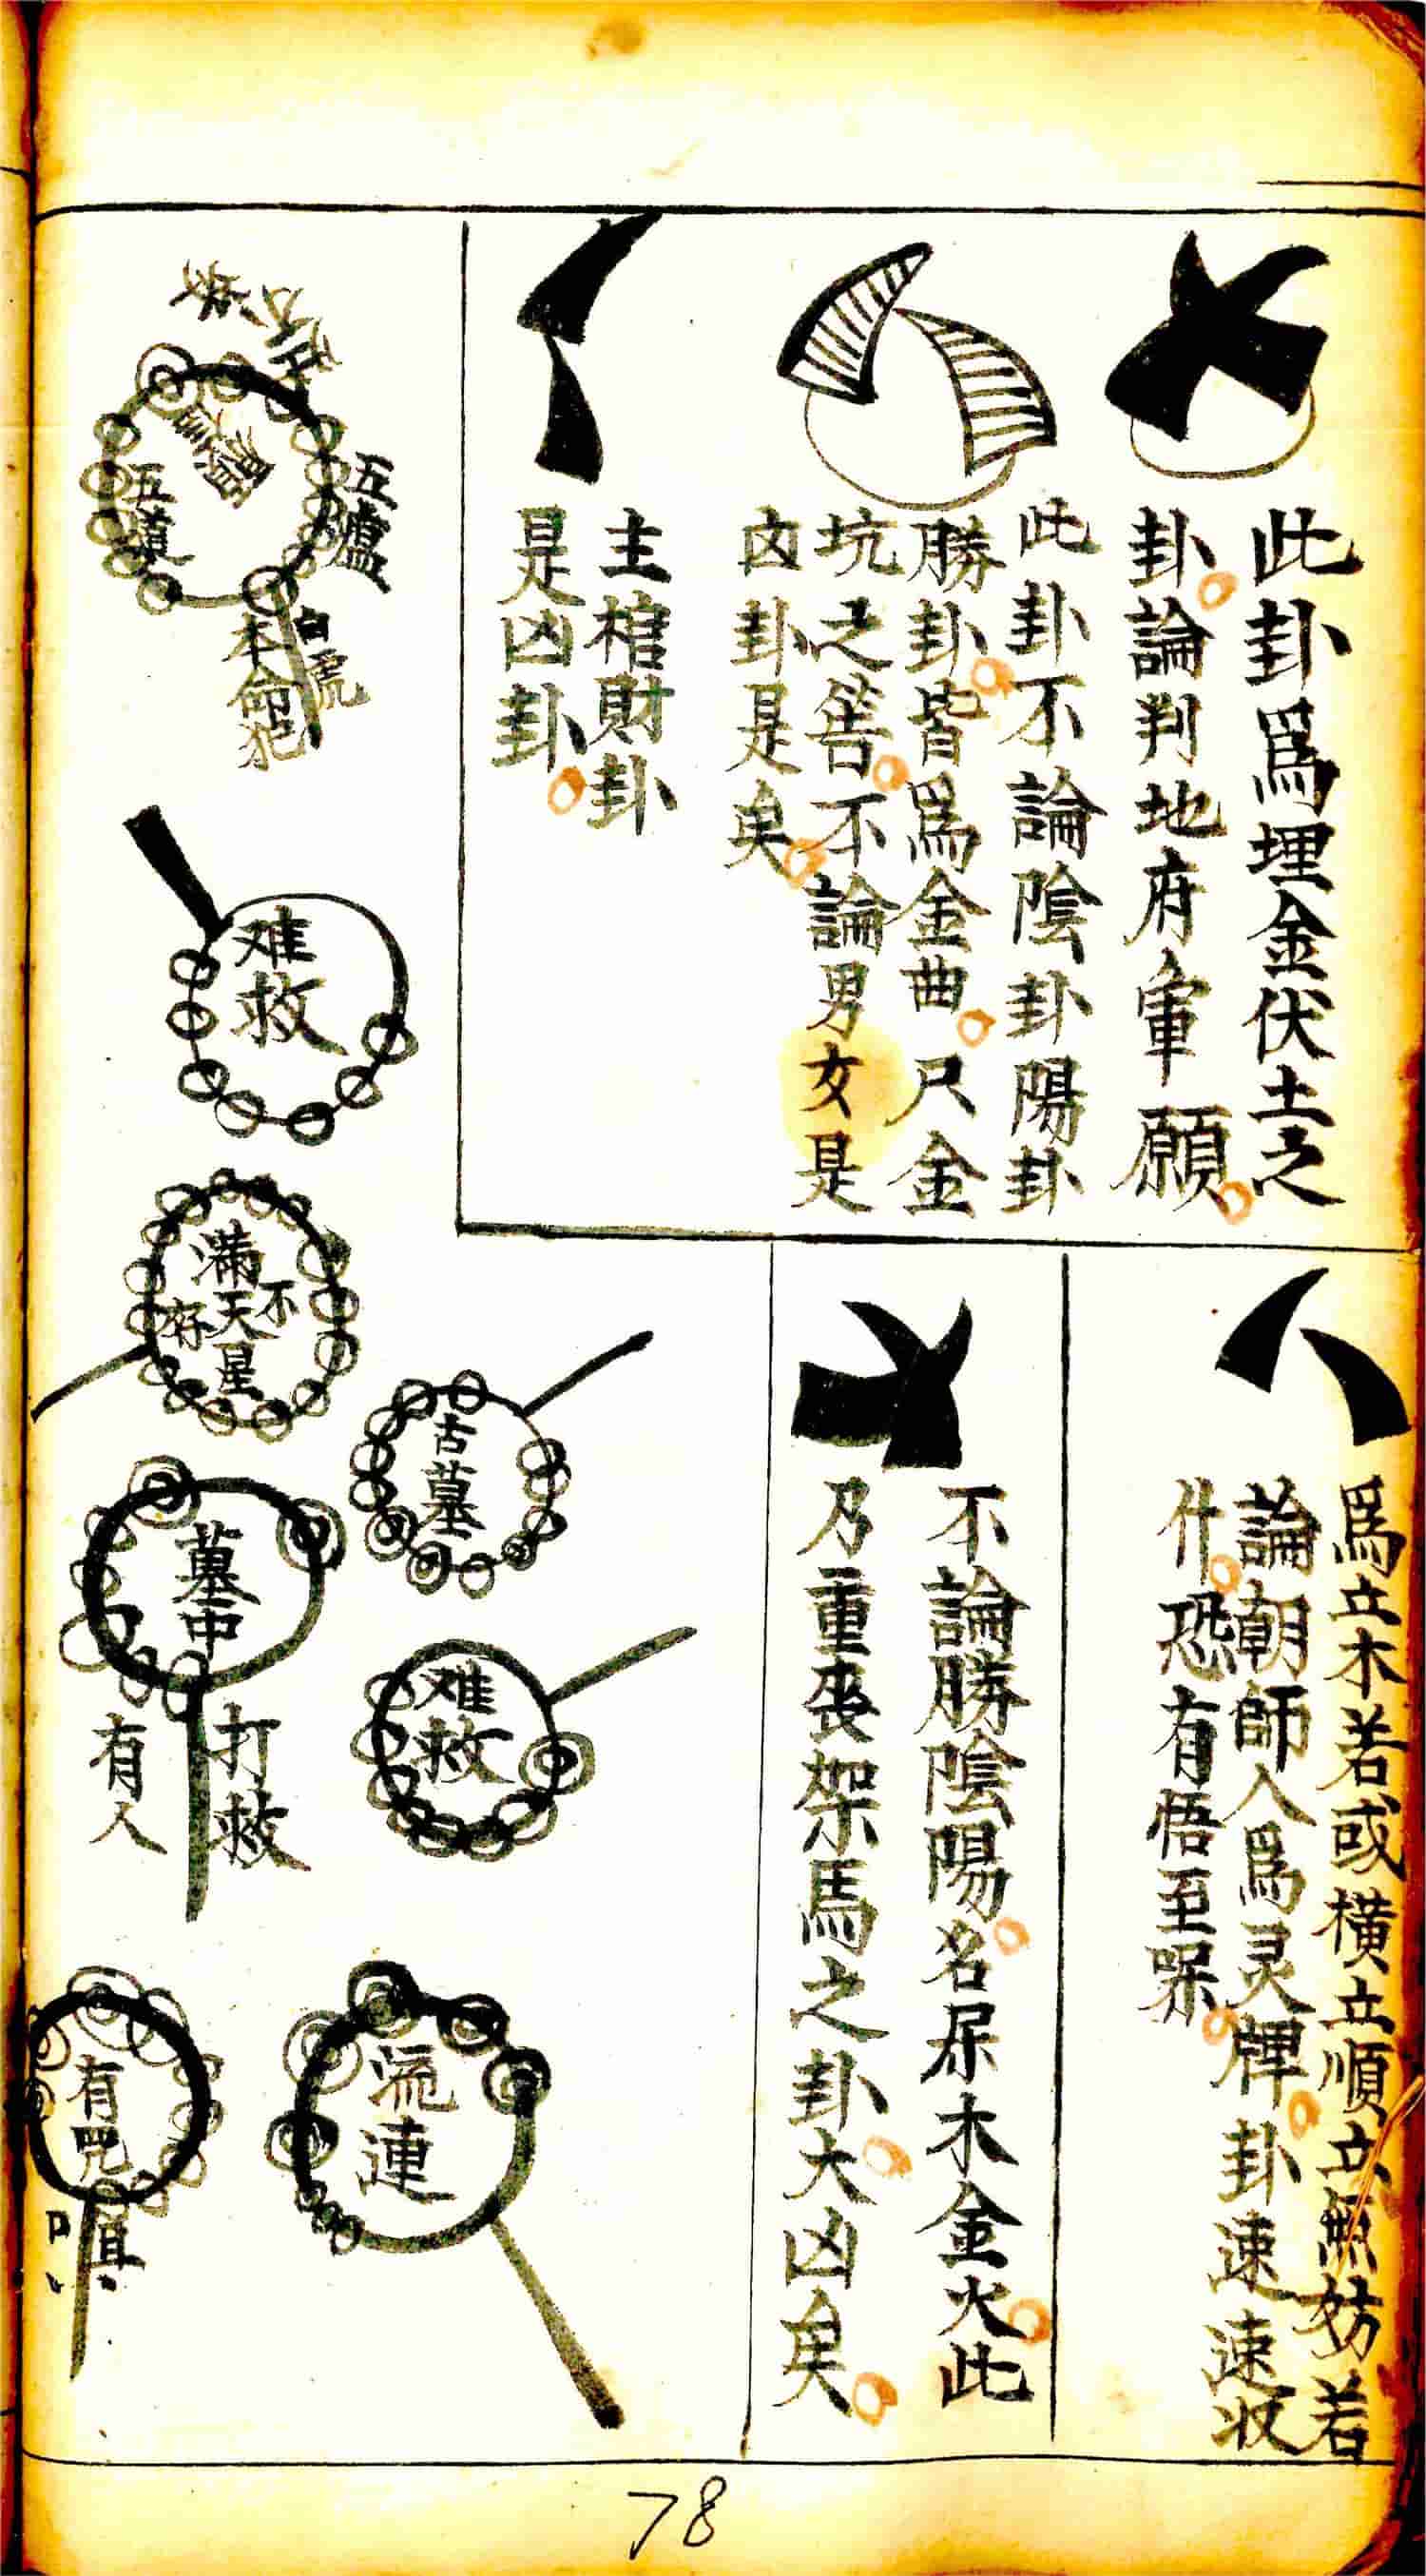 此卦爲埋金伏土之
卦論判地府軍願
此卦不論陰卦陽卦
勝卦皆爲金曲尺金
坑之筶不論男女是
凶卦是矣
主棺財卦
是凶卦
爲立木若或橫立順立無妨若
論朝師入爲灵牌卦速速收
什恐有悟至
不論勝陰陽名尿木金火此
乃重喪架馬之卦大凶矣
五
白虎
本命犯
难救
满天星
不
存
古墓
墓中
有人
打救
难救
流連
有咒
78